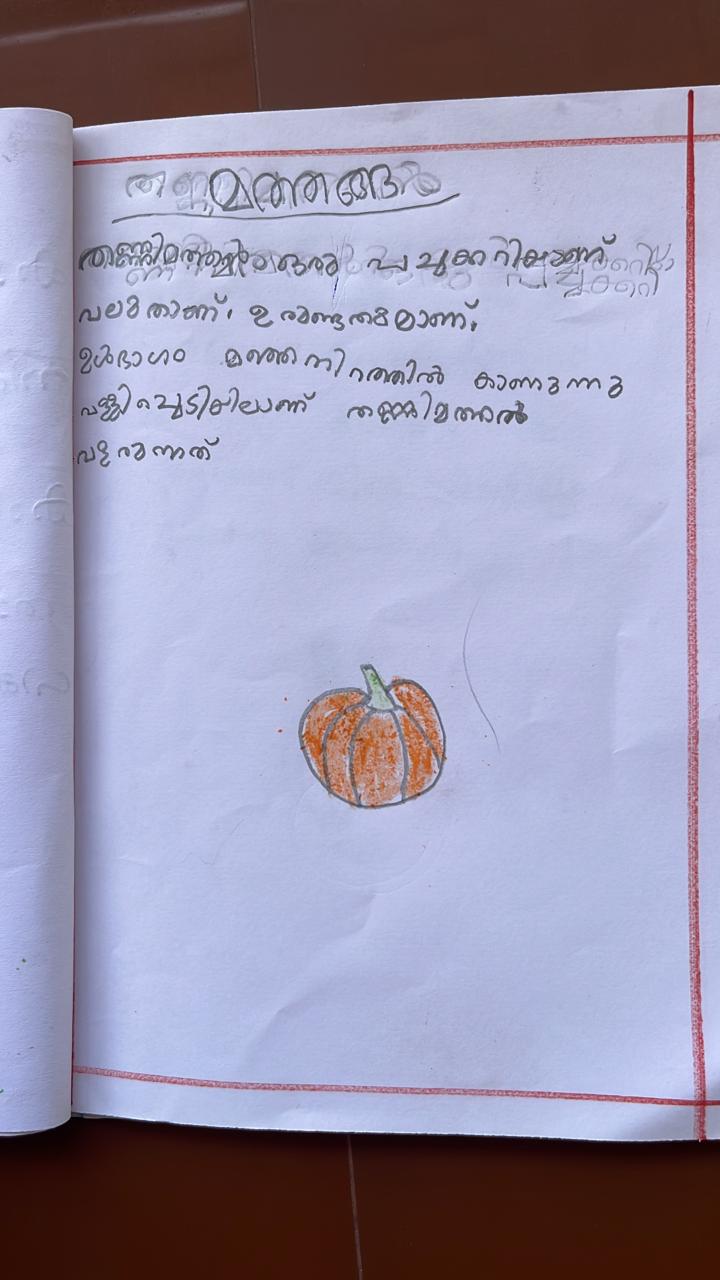 മത്തങ്ങ
തണ്ണിമത്തൻ ഒരു പച്ചക്കറിയാണ്
വലുതാണ്. ഉരുണ്ടതുമാണ്.
ഉൾഭാഗം മഞ്ഞ നിറത്തിൽ കാണുന്നു
വള്ളിച്ചെടിയിലാണ് തണ്ണിമത്തൻ
വളരുന്നത്